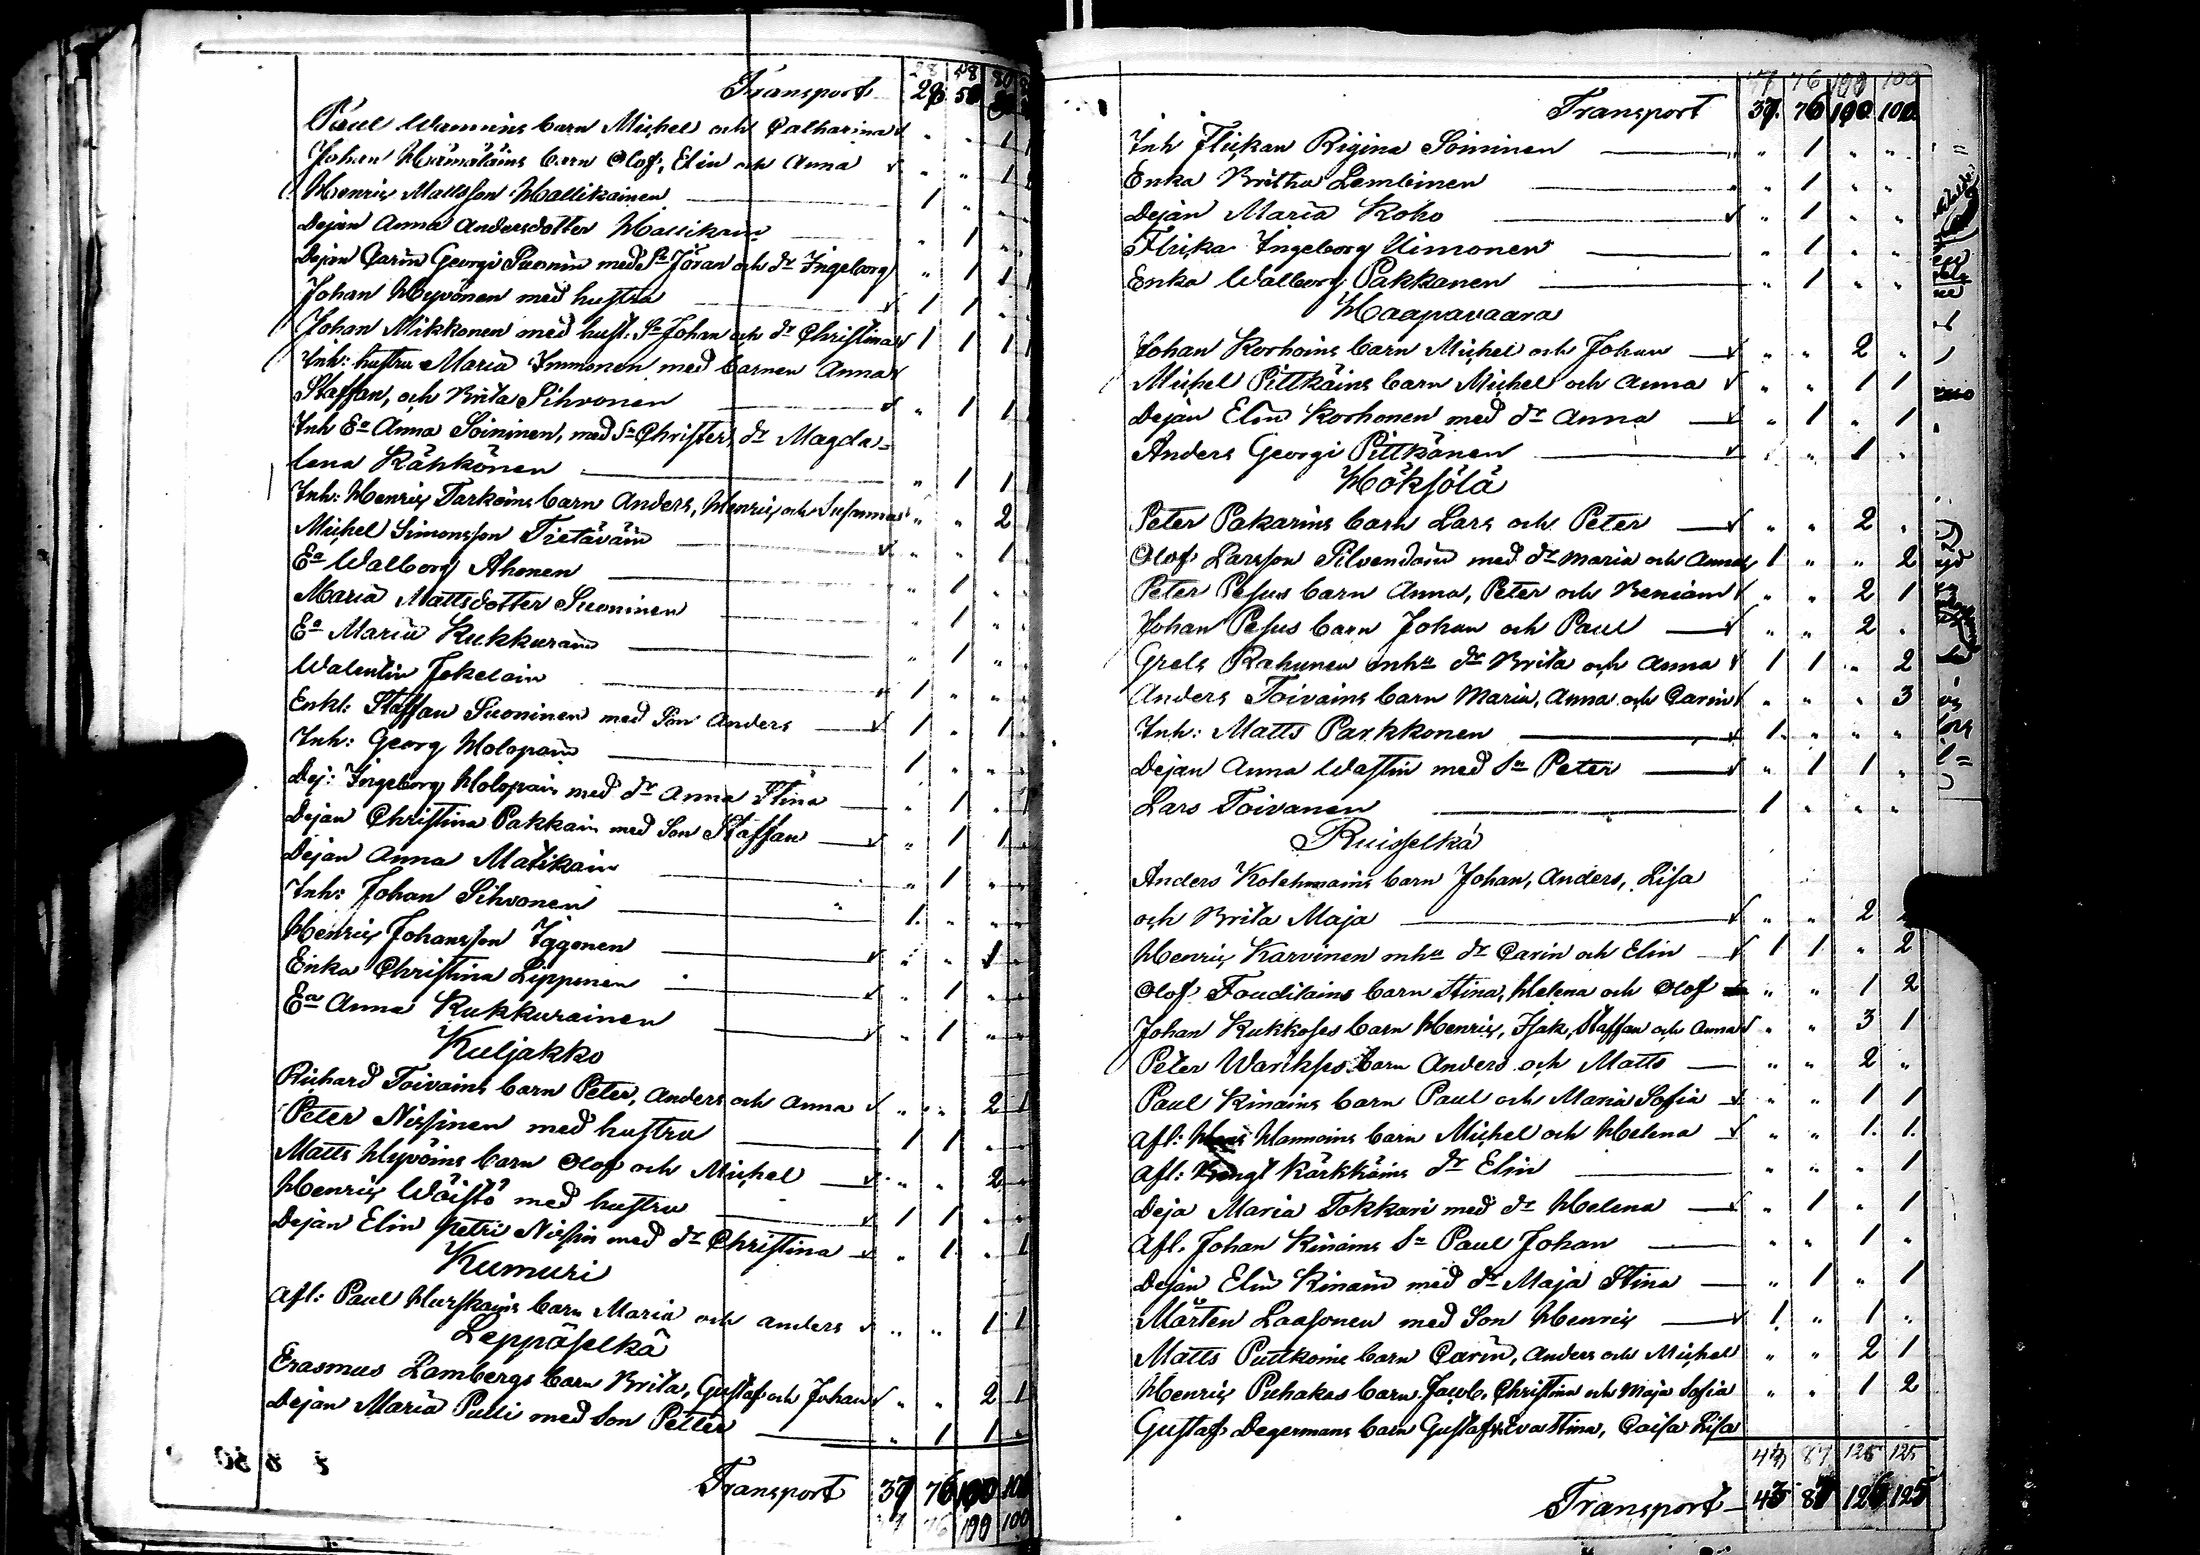 28 58 80
Transport 28 58 80
Paul Wänninś barn Michel och Catharina √ " " 1 1
Johan Hämäläins barn Olof, Elin och Anna √ " " 1
Henric Mattsson Hallikainen 1 " "
Dejan Anna Andersdotter Hallikain " 1 "
Dejan Carin Georgi Suonin med Sn Jöran och dr Ingeborg " 1 1 1
Johan Hyvönen med hustru √ 1 1 "
Johan Mikkonen med hust: Sn Johan och dr Christina √ 1 1 1 1
Inh: hustru Maria Immonen med barnen Anna √
Staffan, och Brita Sihvonen √ " 1 1
Inh Ea Anna Soininen, med Sn Christer, dr Magda=
lena Kähkönen " 1 1
Inh: Henric Tarkains barn Anders, Henric och Susanna " " 2
Michel Simonsson Tietäväin √ " " 1
Ea Walborg Ahonen " 1 "
Maria Mattsdotter Suoninen " 1 "
Ea Maria Kukkurain " 1 "
Walentin Jekelain " 1 " "
Enkl: Staffan Suoninen med Son Anders √ 1 " 1
Inh: Georg Holopain 1 " "
Dej: Ingeborg Holopain med dr Anna Stina " 1 " 1
Dejan Christina Pakkain med Son Staffan √ " 1 1
Dejan Anna Matikain " 1 "
Inh: Johan Sihvonen 1 " "
Henric Johansson Iggonen √ " " 1 "
Enka Christina Lipponen √ " 1 " "
Ea Anna Kukkurainen √ " 1 " "
Kuljakko
Richard Toivains barn Peter, Anders och Anna √ " " 2 1
Peter Nissinen med hustru 1 1 " "
Matts Hyvöins barn Olof och Michel √ " " 2 "
Henric Wäistö med hustru √ 1 1 " "
Dejan Elin Petri Nissin med dr Christina √ " 1 " 1
Kumuri
Afl: Paul Hurskains barn Maria och Anders √ " " 1 1
Leppäselkä
Erasmus Lambergs barn Brita, Gustaf och Johan √ " " 2 1
Dejan Maria Pulli med Son Petter " 1 1 "
Transport 37 76 100 100
37 76 100 100
37 76 100 100
Transport 37 76 100 100
Inh Flickan Rigina Soininen " 1 " "
Enka Britha Lembinen " 1 " "
Dejan Maria Koho √ " 1 " "
Flicka Ingeborg Uimonen " 1 " "
Enka Walborg Pakkanen " 1 " "
Haapavaara
Johan Korhoins barn Michel och Johan √ " " 2 "
Michel Pittkäins barn Michel och Anna √ " " 1 1
Dejan Elin Korhonen med dr Anna √ " 1 " 1
Anders Georgi Pittkänen √ " " 1 "
Höksölä
Peter Pakarins barn Lars och Peter √ " " 2 "
Olof Larsson Pilvendain med dr Maria och Anna √ 1 " " 2
Peter Pesus barn Anna, Peter och Beniam √ " " 2 1
Johan Pesus barn Johan och Paul √ " " 2 "
Grels Rahunen mhu dr Brita och Anna √ 1 1 " 2
Anders Toivains barn Maria, Anna och Carin √ " " " 3
Inh: Matts Parkkonen √ 1 " " "
Dejan Anna Wastin med Sn Peter √ " 1 1 "
Lars Toivanen 1 " " "
Ruisselkä
Anders Kolehmains barn Johan, Anders, Lisa
och Brita Maja √ " " 2 2
Henric Karvinen mhu dr Carin och Elin √ 1 1 " 2
Olof Fouditains barn Stina, Helena och Olof " " 1 2
Johan Kukkoses barn Henric, Isak, Staffan och Anna √ " " 3 1
Peter Warikses barn Anders och Matts " " 2 "
Paul Kinains barn Paul och Maria Sofia √ " " 1 1
Afl: Hannoins barn Michel och Helena √ " " 1 1
Afl: Bengt Kärkkäins dr Elin " " " 1
Deja Maria Tokkari med dr Helena √ " 1 " 1
Afl. Johan Kinains Sn Paul Johan " " 1 "
Dejan Elin Kinain med dr Maja Stina " 1 " 1
Mårten Laasonen med Son Henric √ 1 " 1 "
Matts Puttkoins barn Carin, Anders och Michel " " 2 1
Henric Puhakas barn Jacob, Christina och Maja Sofia " " 1 2
Gustaf Degermans barn Gustaf, Eva Stina, Caisa Lisa
43 87 125 125
Transport 43 87 126 125